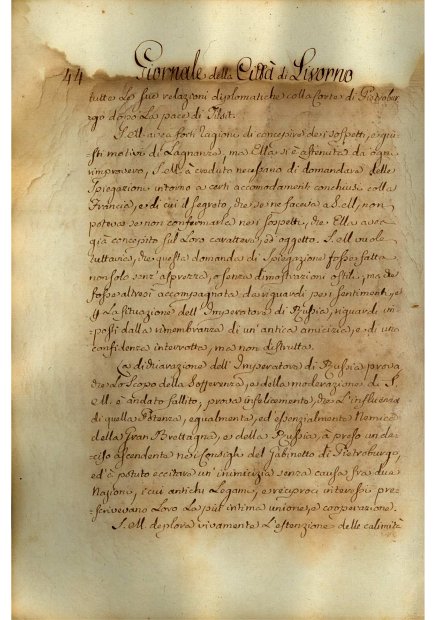 44 Giornale della Città di Livorno
tutte le sue relazioni diplomatiche colla Corte di Pietrobur
go dopo la pace di Tilsit.
S.M. avea forti ragioni di concepire dei sospetti, e giu
sti motivi di Lagnanza, ma Ella si è astenuta da ogni
rimprovero, S.M. à creduto necessario di domandare delle
Spiegazioni intorno a certi accomodamenti conchiusi colla
Francia, e di cui il segreto, che se ne faceva a S.M., non
poteva se non confermarla nei sospetti, che Ella avea
già concepito sul Loro carattere, ed oggetto. S.M. vuole
tuttavia, che questa domanda di Spiegazione fosse fatta
non solo senz'asprezza, o senza dimostrazioni ostili, ma che
fosse altresì accompagnata da riguardi per i sentimenti, e
la Situazione dell'Imperatore di Russia, riguardi im
posti dalla rimembranza di un'antica amicizia, e di una
confidenza interrotta, ma non distrutta.
La dichiarazione dell'Imperatore di Russia prova
che lo Scopo della Sofferenza, e della moderazione di S.
M. è andato fallito, prova infelicemente, che l'influenza
di quella Potenza, egualmente, ed essenzialmente Nemica
della Gran Brettagna, e della Russia, à preso un de
ciso ascendente nei Consigli del Gabinetto di Pietroburgo,
ed à potuto eccitare un'inimicizia senza causa fra due
Nazioni, i cui antichi Legami, e reciproci interessi pre
=scrivevano Loro la più intima unione, e cooperazione.
S.M. deplora vivamente l'estenzione delle calimità